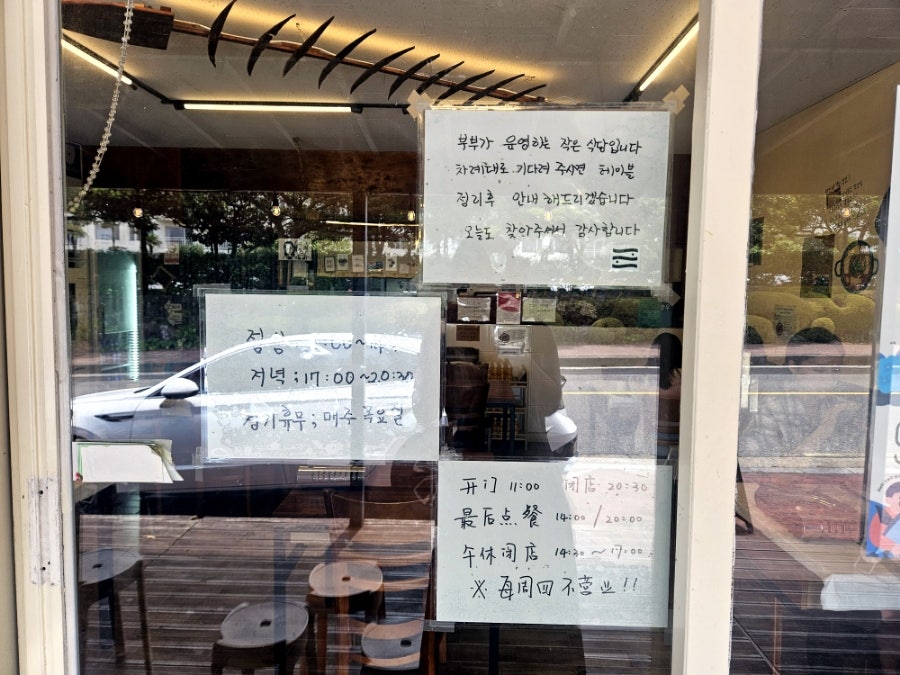 부부가 운영하는 작은 식당입니다
차례대로 기다려 주시면 테이블
정리후 안내 해드리겠습니다
오늘도 찾아주셔서 감사합니다
점심
저녁 ; 17:00~20:30
정기휴무 ; 매주 목요일
开门 11:00 闭店 20:30
最后点餐 14:00 / 20:00
午休闭店 14:30 ~ 17:00
※ 每周四 不营业!!